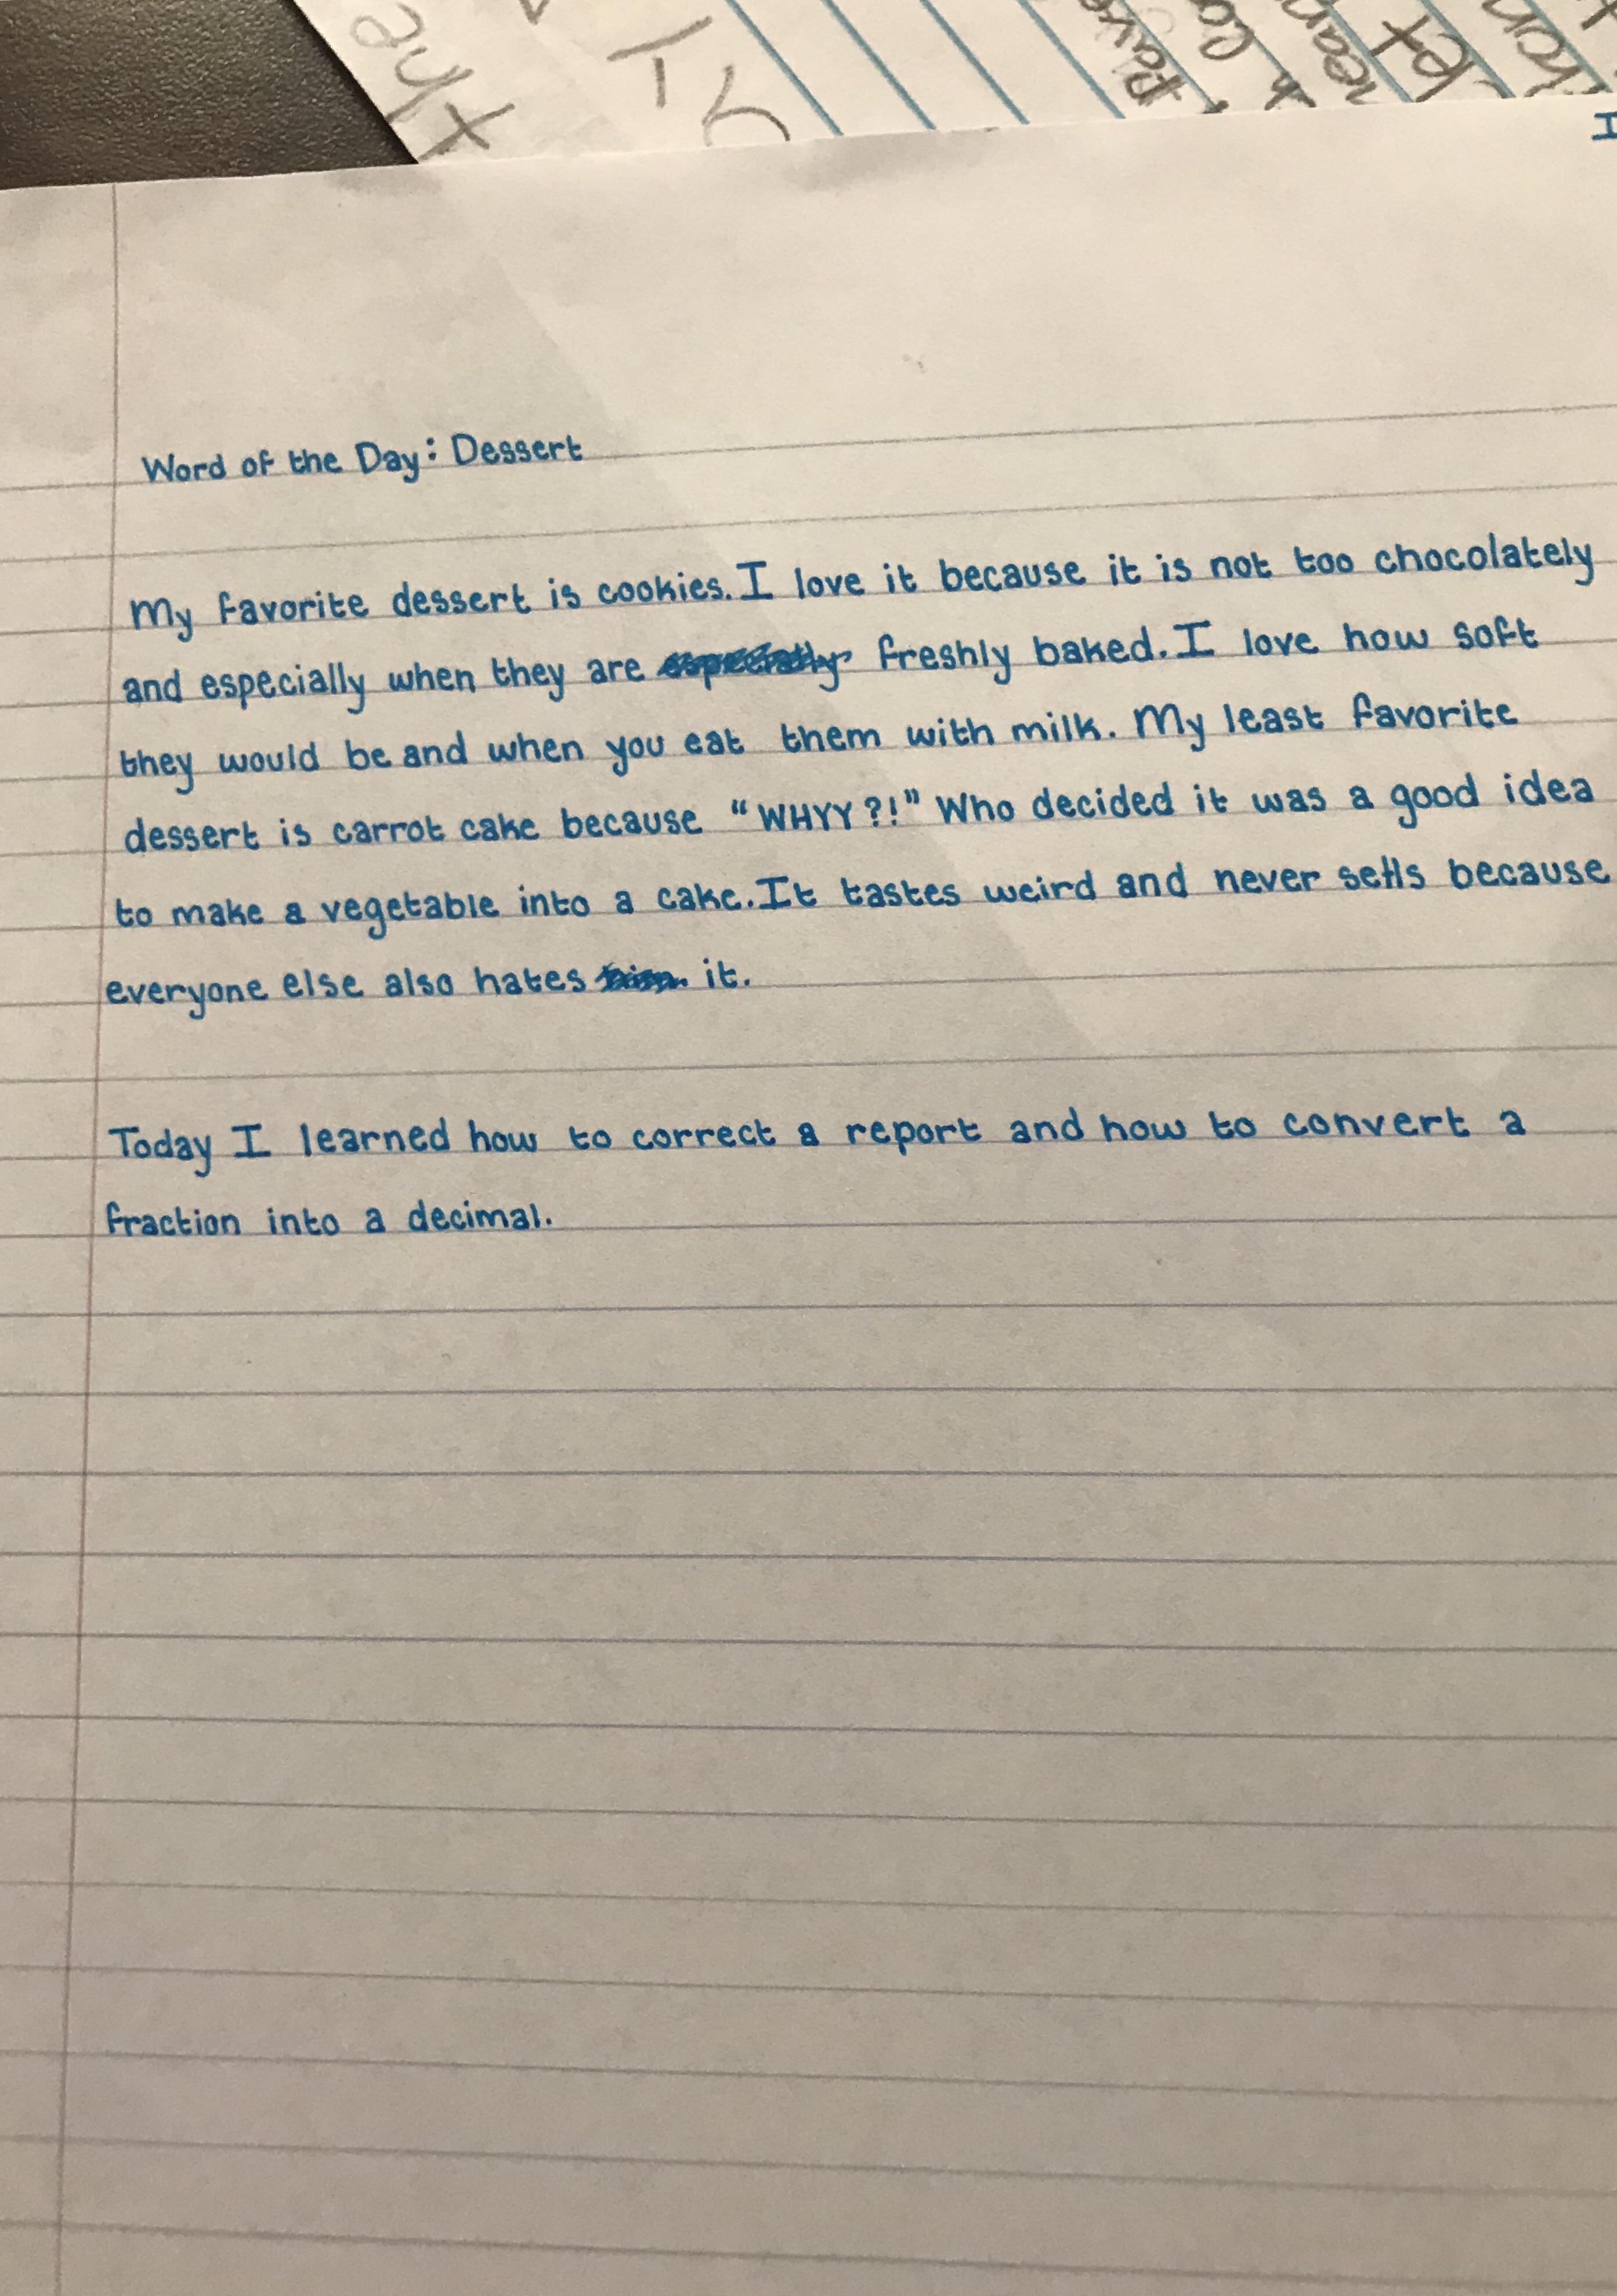 the
Word of the Day: Dessert
My favorite dessert is cookies. I love it because it is not too chocolately
and especially when they are especially freshly baked. I love how soft
they would be and when you eat them with milk. My least favorite
dessert is carrot cake because "WHYY?!" Who decided it was a good idea
to make a vegetable into a cake. It tastes weird and never sells because
everyone else also hates it.
Today I learned how to correct a report and how to convert a
fraction into a decimal.